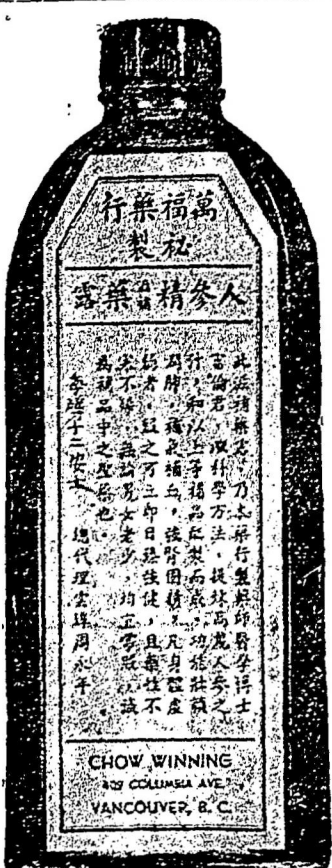 萬福藥行
秘製
人參精藥露
此補藥露,乃本藥行製藥師醫學博士
吉倫君,以科學方法,提煉高麗人參之
汁,和以上等補品配製而成,功能壯腦
潤肺,補氣補血,強腎固精。凡身體虛
弱者,服之可立即日臻強健,且藥性不
不燥,無論男女老少,均宜常服,誠
為補品中之聖藥也。
每瓶十二安士 總代理雲埠周永平
CHOW WINNING
409 COLUMBIA AVE.,
VANCOUVER, B. C.